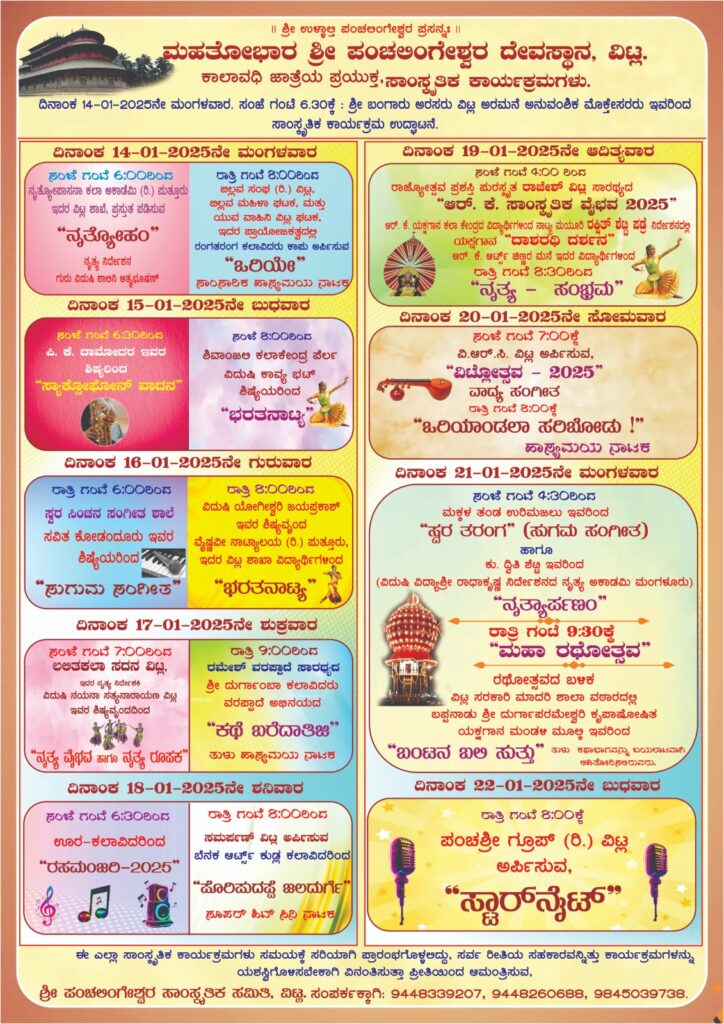 ॥ ಶ್ರೀ ಉಳ್ಳಾಲ್ತಿ ಪಂಚಲಿಂಗೇಶ್ವರ ಪ್ರಸನ್ನಃ ॥
ಮಹತೋಭಾರ ಶ್ರೀ ಪಂಚಲಿಂಗೇಶ್ವರ ದೇವಸ್ಥಾನ, ವಿಟ್ಲ.
ಕಾಲಾವಧಿ ಜಾತ್ರೆಯ ಪ್ರಯುಕ್ತ, ಸಾಂಸ್ಕೃತಿಕ ಕಾರ್ಯಕ್ರಮಗಳು.
ದಿನಾಂಕ 14-01-2025ನೇ ಮಂಗಳವಾರ. ಸಂಜೆ ಗಂಟೆ 6.30ಕ್ಕೆ : ಶ್ರೀ ಬಂಗಾರು ಅರಸರು ವಿಟ್ಲ ಅರಮನೆ ಅನುವಂಶಿಕ ಮೊಕ್ತೇಸರರು ಇವರಿಂದ
ಸಾಂಸ್ಕೃತಿಕ ಕಾರ್ಯಕ್ರಮ ಉದ್ಘಾಟನೆ.
ದಿನಾಂಕ 14-01-2025ನೇ ಮಂಗಳವಾರ
ಸಂಜೆ ಗಂಟೆ 6:00ರಿಂದ
ನೃತ್ಯೋಪಾಸನಾ ಕಲಾ ಅಕಾಡಮಿ (ರಿ.) ಪುತ್ತೂರು
ಇದರ ವಿಟ್ಲ ಶಾಖೆ, ಪ್ರಸ್ತುತ ಪಡಿಸುವ
“ನೃತ್ಯೋಹಂ”
ನೃತ್ಯ ನಿರ್ದೇಶನ
ಗುರು ವಿದುಷಿ ಶಾಲಿನಿ ಆತ್ಮಭೂಷಣ್
ರಾತ್ರಿ ಗಂಟೆ 8:00ರಿಂದ
ಬಿಲ್ಲವ ಸಂಘ (ರಿ.) ವಿಟ್ಲ,
ಬಿಲ್ಲವ ಮಹಿಳಾ ಘಟಕ, ಮತ್ತು
ಯುವ ವಾಹಿನಿ ವಿಟ್ಲ ಘಟಕ,
ಇದರ ಪ್ರಾಯೋಜಕತ್ವದಲ್ಲಿ
ರಂಗತರಂಗ ಕಲಾವಿದರು ಕಾಪು ಅರ್ಪಿಸುವ
“ಒರಿಯೇ”
ಸಾಂಸಾರಿಕ ಹಾಸ್ಯಮಯ ನಾಟಕ
ದಿನಾಂಕ 15-01-2025ನೇ ಬುಧವಾರ
ಸಂಜೆ ಗಂಟೆ 6:30ರಿಂದ
ಪಿ. ಕೆ. ದಾಮೋದರ ಇವರ
ಶಿಷ್ಯರಿಂದ
“ಸ್ಯಾಕ್ಸೋಫೋನ್ ವಾದನ”
ಸಂಜೆ 8:00ರಿಂದ
ಶಿವಾಂಜಲಿ ಕಲಾಕೇಂದ್ರ ಪೆರ್ಲ
ವಿದುಷಿ ಕಾವ್ಯ ಭಟ್
ಶಿಷ್ಯೆಯರಿಂದ
“ಭರತನಾಟ್ಯ”
ದಿನಾಂಕ 16-01-2025ನೇ ಗುರುವಾರ
ರಾತ್ರಿ ಗಂಟೆ 6:00ರಿಂದ
ಸ್ವರ ಸಿಂಚನ ಸಂಗೀತ ಶಾಲೆ
ಸವಿತ ಕೋಡಂದೂರು ಇವರ
ಶಿಷ್ಯೆಯರಿಂದ
“ಸುಗುಮ ಸಂಗೀತ”
ರಾತ್ರಿ ಗಂಟೆ 8:00ರಿಂದ
ವಿದುಷಿ ಯೋಗೀಶ್ವರಿ ಜಯಪ್ರಕಾಶ್
ಇವರ ಶಿಷ್ಯವೃಂದ
ವೈಷ್ಣವೀ ನಾಟ್ಯಾಲಯ (ರಿ.) ಪುತ್ತೂರು,
ಇದರ ವಿಟ್ಲ ಶಾಖಾ ವಿದ್ಯಾರ್ಥಿಗಳಿಂದ
“ಭರತನಾಟ್ಯ”
ದಿನಾಂಕ 17-01-2025ನೇ ಶುಕ್ರವಾರ
ಸಂಜೆ ಗಂಟೆ 7:00ರಿಂದ
ಲಲಿತಕಲಾ ಸದನ ವಿಟ್ಲ,
ಇದರ ನೃತ್ಯ ನಿರ್ದೇಶಕಿ
ವಿದುಷಿ ನಯನಾ ಸತ್ಯನಾರಾಯಣ ವಿಟ್ಲ
ಇವರ ಶಿಷ್ಯವೃಂದದಿಂದ
“ನೃತ್ಯ ವೈಭವ ಹಾಗೂ ನೃತ್ಯ ರೂಪಕ”
ರಾತ್ರಿ 9:00ರಿಂದ
ರಮೇಶ್ ವರಪ್ಪಾದೆ ಸಾರಥ್ಯದ
ಶ್ರೀ ದುರ್ಗಾಂಬಾ ಕಲಾವಿದರು
ವರಪ್ಪಾದೆ ಅಭಿನಯದ
“ಕಥೆ ಬರೆದಾತಿಜಿ”
ತುಳು ಹಾಸ್ಯಮಯ ನಾಟಕ
ದಿನಾಂಕ 18-01-2025ನೇ ಶನಿವಾರ
ಸಂಜೆ ಗಂಟೆ 6:30ರಿಂದ
ಊರ-ಕಲಾವಿದರಿಂದ
“ರಸಮಂಜರಿ-2025”
ರಾತ್ರಿ ಗಂಟೆ 8:00ರಿಂದ
ಸಮರ್ಪಣ್ ವಿಟ್ಲ ಅರ್ಪಿಸುವ
ಬೆನಕ ಆರ್ಟ್ಸ್ ಕುಡ್ಲ ಕಲಾವಿದರಿಂದ
“ಪೊರಿಪುದಪ್ಪೆ ಜಲದುರ್ಗೆ”
ಸೂಪರ್ ಹಿಟ್ ಸಿನಿ ನಾಟಕ
ದಿನಾಂಕ 19-01-2025ನೇ ಆದಿತ್ಯವಾರ
ಸಂಜೆ ಗಂಟೆ 4:00 ರಿಂದ
ರಾಜ್ಯೋತ್ಸವ ಪ್ರಶಸ್ತಿ ಪುರಸ್ಕೃತ ರಾಜೇಶ್ ವಿಟ್ಲ ಸಾರಥ್ಯದ
“ಆರ್. ಕೆ. ಸಾಂಸ್ಕೃತಿಕ ವೈಭವ 2025”
ಆರ್. ಕೆ. ಯಕ್ಷಗಾನ ಕಲಾ ಕೇಂದ್ರದ ವಿದ್ಯಾರ್ಥಿಗಳಿಂದ ನಾಟ್ಯ ಮಯೂರಿ ರಕ್ಷಿತ್ ಶೆಟ್ಟಿ ಪಡ್ರೆ ನಿರ್ದೇಶನದಲ್ಲಿ
ಯಕ್ಷಗಾನ “ದಾಶರಥಿ ದರ್ಶನ”
ಆರ್. ಕೆ. ಆರ್ಟ್ಸ್ ಚಿಣ್ಣರ ಮನೆ ಇದರ ವಿದ್ಯಾರ್ಥಿಗಳಿಂದ
ರಾತ್ರಿ ಗಂಟೆ 8:30ರಿಂದ
“ನೃತ್ಯ - ಸಂಭ್ರಮ”
ದಿನಾಂಕ 20-01-2025ನೇ ಸೋಮವಾರ
ಸಂಜೆ ಗಂಟೆ 7:00ಕ್ಕೆ
ವಿ.ಆರ್.ಸಿ. ವಿಟ್ಲ ಅರ್ಪಿಸುವ,
“ವಿಟ್ಲೋತ್ಸವ - 2025”
ವಾದ್ಯ ಸಂಗೀತ
ರಾತ್ರಿ ಗಂಟೆ 8:00ಕ್ಕೆ
“ಒರಿಯಾಂಡಲಾ ಸರಿಬೋಡು !”
ಹಾಸ್ಯಮಯ ನಾಟಕ
ದಿನಾಂಕ 21-01-2025ನೇ ಮಂಗಳವಾರ
ಸಂಜೆ ಗಂಟೆ 4:30ರಿಂದ
ಮಕ್ಕಳ ತಂಡ ಉರಿಮಜಲು ಇವರಿಂದ
“ಸ್ವರ ತರಂಗ” (ಸುಗಮ ಸಂಗೀತ)
ಹಾಗೂ
ಕು. ದ್ವಿತಿ ಶೆಟ್ಟಿ ಇವರಿಂದ
(ವಿದುಷಿ ವಿದ್ಯಾಶ್ರೀ ರಾಧಾಕೃಷ್ಣ ನಿರ್ದೇಶನದ ನೃತ್ಯ ಅಕಾಡಮಿ ಮಂಗಳೂರು)
“ನೃತ್ಯಾರ್ಪಣಂ”
ರಾತ್ರಿ ಗಂಟೆ 9:30ಕ್ಕೆ
“ಮಹಾ ರಥೋತ್ಸವ”
ರಥೋತ್ಸವದ ಬಳಿಕ
ವಿಟ್ಲ ಸರಕಾರಿ ಮಾದರಿ ಶಾಲಾ ವಠಾರದಲ್ಲಿ
ಬಪ್ಪನಾಡು ಶ್ರೀ ದುರ್ಗಾಪರಮೇಶ್ವರಿ ಕೃಪಾಪೋಷಿತ
ಯಕ್ಷಗಾನ ಮಂಡಳಿ ಮೂಲ್ಕಿ ಇವರಿಂದ
“ಬಂಟನ ಬಲಿ ಸುತ್ತು” ತುಳು ಕಥಾಭಾಗವನ್ನು ಬಯಲಾಟವಾಗಿ
ಆಡಿತೋರಿಸಲಿರುವರು.
ದಿನಾಂಕ 22-01-2025ನೇ ಬುಧವಾರ
ರಾತ್ರಿ ಗಂಟೆ 8:00ಕ್ಕೆ
ಪಂಚಶ್ರೀ ಗ್ರೂಪ್ (ರಿ.) ವಿಟ್ಲ
ಅರ್ಪಿಸುವ,
“ಸ್ಟಾರ್‌ನೈಟ್”
ಈ ಎಲ್ಲಾ ಸಾಂಸ್ಕೃತಿಕ ಕಾರ್ಯಕ್ರಮಗಳು ಸಮಯಕ್ಕೆ ಸರಿಯಾಗಿ ಪ್ರಾರಂಭಗೊಳ್ಳಲಿದ್ದು, ಸರ್ವ ರೀತಿಯ ಸಹಕಾರವನ್ನಿತ್ತು ಕಾರ್ಯಕ್ರಮಗಳನ್ನು
ಯಶಸ್ವಿಗೊಳಿಸಬೇಕಾಗಿ ವಿನಂತಿಸುತ್ತಾ ಪ್ರೀತಿಯಿಂದ ಆಮಂತ್ರಿಸುವ,
ಶ್ರೀ ಪಂಚಲಿಂಗೇಶ್ವರ ಸಾಂಸ್ಕೃತಿಕ ಸಮಿತಿ, ವಿಟ್ಲ. ಸಂಪರ್ಕಕ್ಕಾಗಿ: 9448339207, 9448260688, 9845039738.